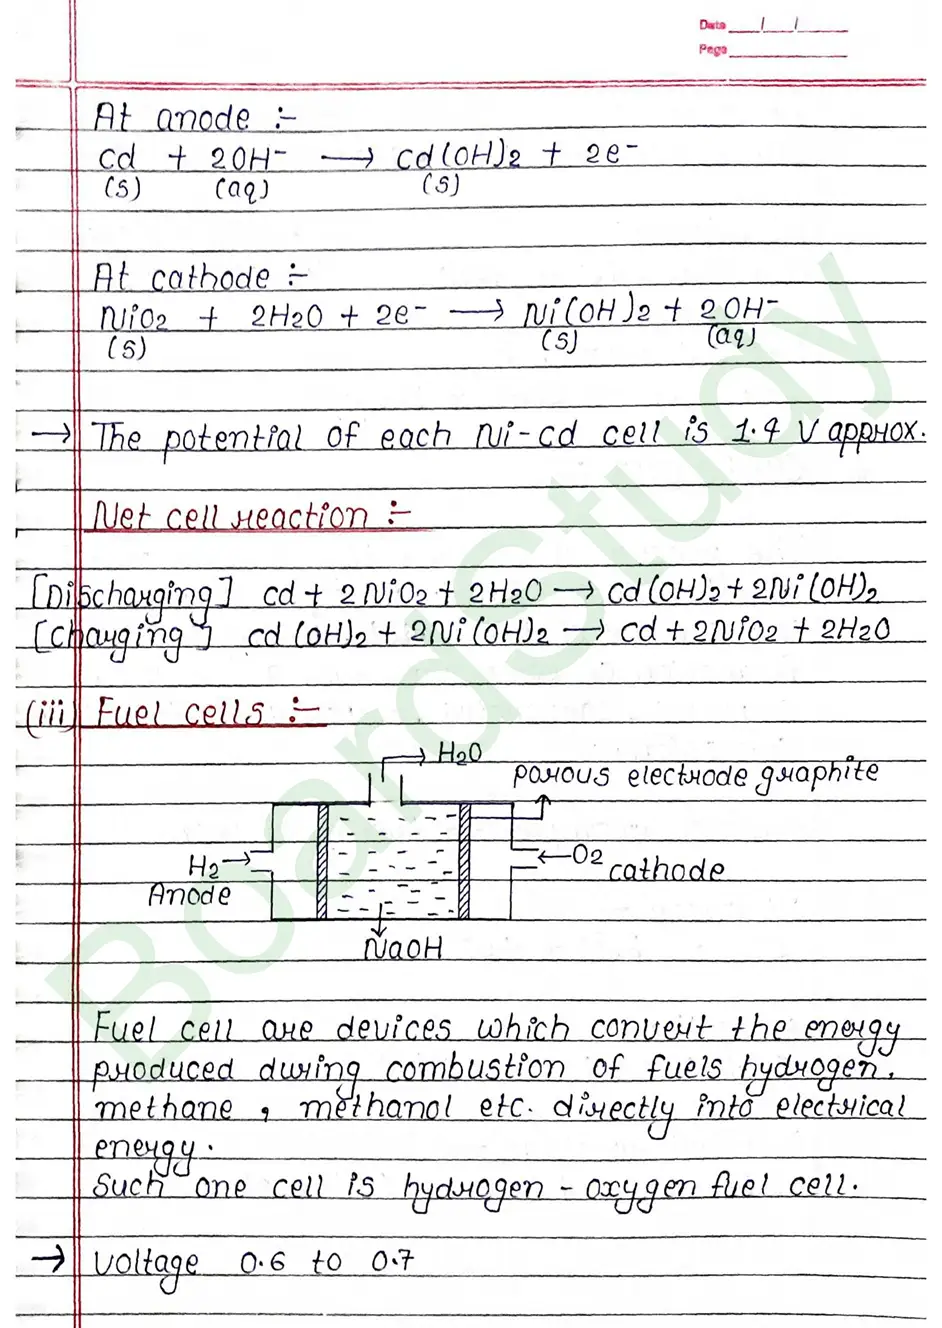 Date / /
Page
At anode :-
Cd + 2OH⁻ ⟶ Cd(OH)2 + 2e⁻
(s) (aq) (s)
At cathode :-
NiO2 + 2H2O + 2e⁻ ⟶ Ni(OH)2 + 2OH⁻
(s) (s) (aq)
→ The potential of each Ni-Cd cell is 1.4 V approx.
Net cell reaction :-
[Discharging] Cd + 2NiO2 + 2H2O ⟶ Cd(OH)2 + 2Ni(OH)2
[Charging] Cd(OH)2 + 2Ni(OH)2 ⟶ Cd + 2NiO2 + 2H2O
(iii) Fuel cells :-
H2O
porous electrode graphite
H2
O2
cathode
Anode
NaOH
Fuel cell are devices which convert the energy
produced during combustion of fuels hydrogen,
methane, methanol etc. directly into electrical
energy.
Such one cell is hydrogen - oxygen fuel cell.
→ Voltage 0.6 to 0.7
BoardStudy